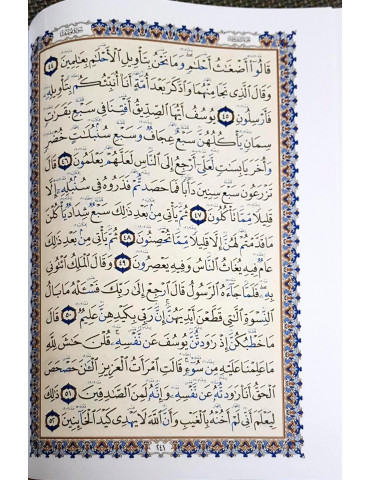 قَالُوٓا۟ أَضْغَٰثُ أَحْلَٰمٍ وَمَا نَحْنُ بِتَأْوِيلِ ٱلْأَحْلَٰمِ بِعَٰلِمِينَ ٤٤
وَقَالَ ٱلَّذِى نَجَا مِنْهُمَا وَٱدَّكَرَ بَعْدَ أُمَّةٍ أَنَا۠ أُنَبِّئُكُم بِتَأْوِيلِهِۦ
فَأَرْسِلُونِ ٤٥ يُوسُفُ أَيُّهَا ٱلصِّدِّيقُ أَفْتِنَا فِى سَبْعِ بَقَرَٰتٍ
سِمَانٍ يَأْكُلُهُنَّ سَبْعٌ عِجَافٌ وَسَبْعِ سُنۢبُلَٰتٍ خُضْرٍ
وَأُخَرَ يَابِسَٰتٍ لَّعَلِّىٓ أَرْجِعُ إِلَى ٱلنَّاسِ لَعَلَّهُمْ يَعْلَمُونَ ٤٦ قَالَ
تَزْرَعُونَ سَبْعَ سِنِينَ دَأَبًا فَمَا حَصَدتُّمْ فَذَرُوهُ فِى سُنۢبُلِهِۦٓ إِلَّا
قَلِيلًا مِّمَّا تَأْكُلُونَ ٤٧ ثُمَّ يَأْتِى مِنۢ بَعْدِ ذَٰلِكَ سَبْعٌ شِدَادٌ يَأْكُلْنَ
مَا قَدَّمْتُمْ لَهُنَّ إِلَّا قَلِيلًا مِّمَّا تُحْصِنُونَ ٤٨ ثُمَّ يَأْتِى مِنۢ بَعْدِ ذَٰلِكَ
عَامٌ فِيهِ يُغَاثُ ٱلنَّاسُ وَفِيهِ يَعْصِرُونَ ٤٩ وَقَالَ ٱلْمَلِكُ ٱئْتُونِى
بِهِۦ فَلَمَّا جَآءَهُ ٱلرَّسُولُ قَالَ ٱرْجِعْ إِلَىٰ رَبِّكَ فَسْـَٔلْهُ مَا بَالُ
ٱلنِّسْوَةِ ٱلَّٰتِى قَطَّعْنَ أَيْدِيَهُنَّ إِنَّ رَبِّى بِكَيْدِهِنَّ عَلِيمٌ ٥٠ قَالَ
مَا خَطْبُكُنَّ إِذْ رَٰوَدتُّنَّ يُوسُفَ عَن نَّفْسِهِۦ قُلْنَ حَٰشَ لِلَّهِ
مَا عَلِمْنَا عَلَيْهِ مِن سُوٓءٍ قَالَتِ ٱمْرَأَتُ ٱلْعَزِيزِ ٱلْـَٰٔنَ حَصْحَصَ
ٱلْحَقُّ أَنَا۠ رَٰوَدتُّهُۥ عَن نَّفْسِهِۦ وَإِنَّهُۥ لَمِنَ ٱلصَّٰدِقِينَ ٥١ ذَٰلِكَ
لِيَعْلَمَ أَنِّى لَمْ أَخُنْهُ بِٱلْغَيْبِ وَأَنَّ ٱللَّهَ لَا يَهْدِى كَيْدَ ٱلْخَآئِنِينَ ٥٢
٢٤١